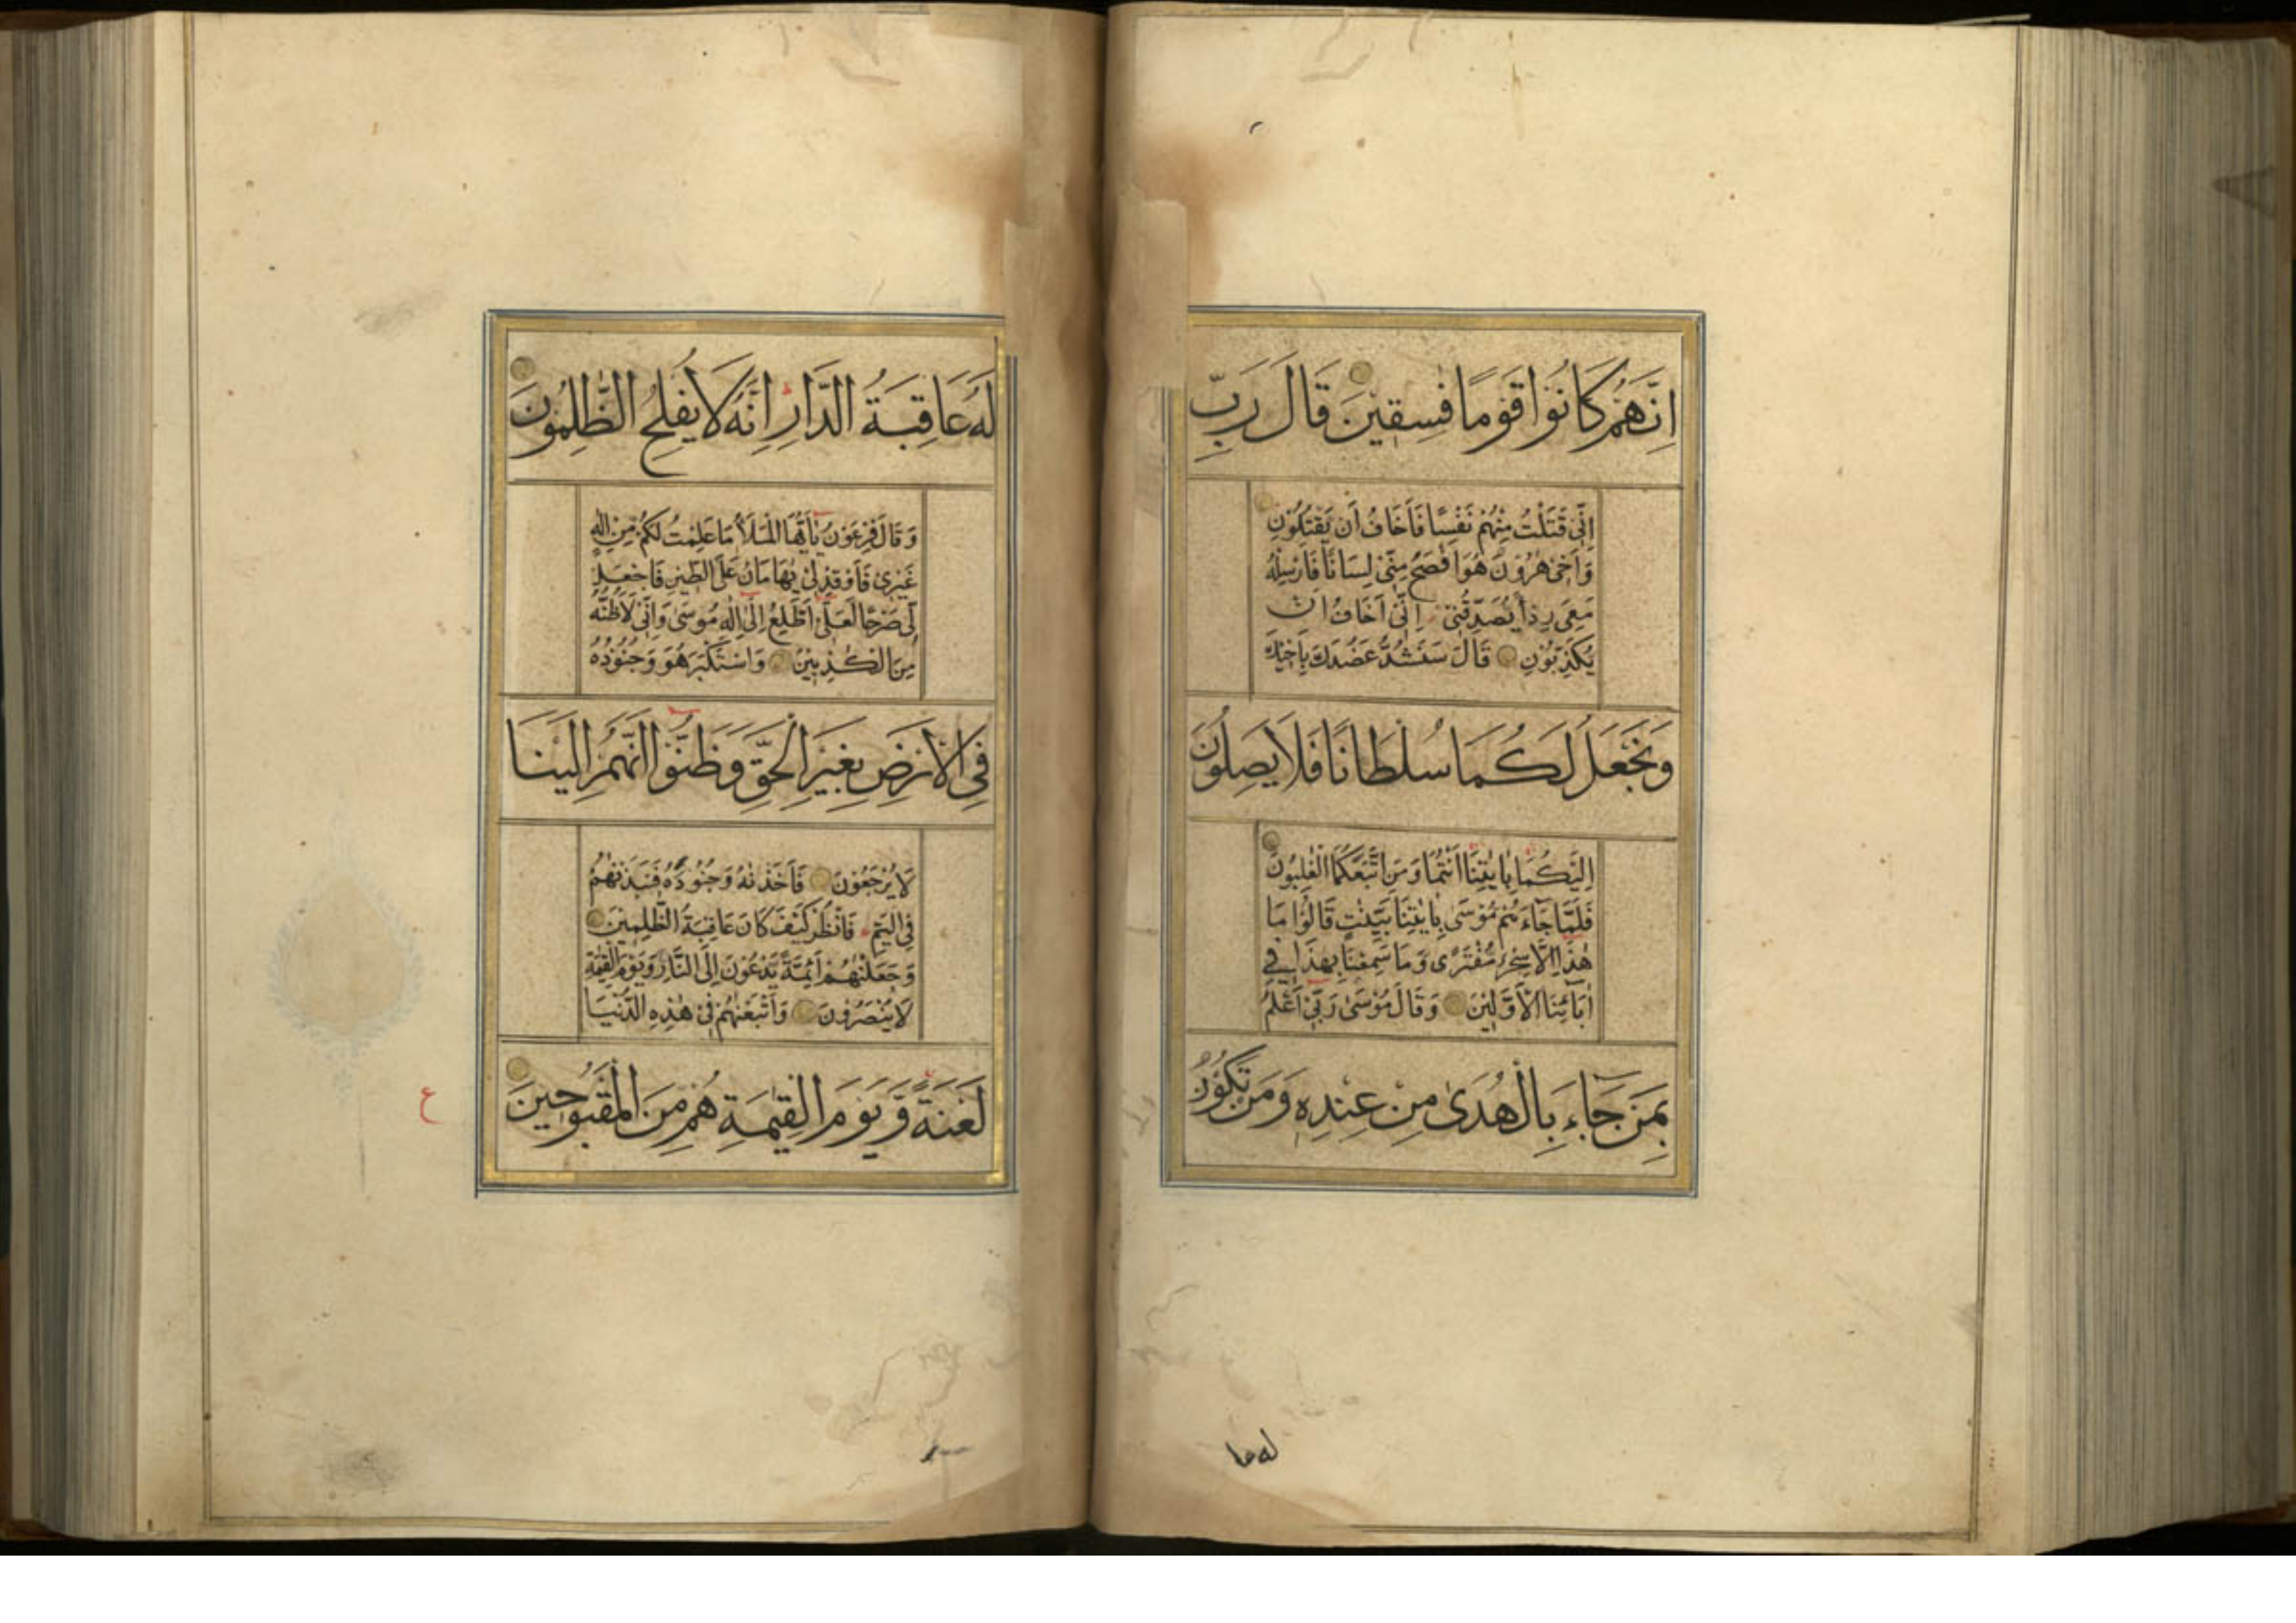 اِنَّهُمْ كَانُوا قَوْمًا فٰسِقٖينَ قَالَ رَبِّ
اِنّٖى قَتَلْتُ مِنْهُمْ نَفْسًا فَاَخَافُ اَنْ يَقْتُلُوْنِ
وَاَخٖى هٰرُوْنُ هُوَ اَفْصَحُ مِنّٖى لِسَانًا فَاَرْسِلْهُ
مَعِىَ رِدْاً يُصَدِّقُنٖى اِنّٖى اَخَافُ اَنْ
يُكَذِّبُوْنِ قَالَ سَنَشُدُّ عَضُدَكَ بِاَخٖيكَ
وَنَجْعَلُ لَكُمَا سُلْطَانًا فَلَا يَصِلُوْنَ
اِلَيْكُمَا بِاٰيٰتِنَا اَنْتُمَا وَمَنِ اتَّبَعَكُمَا الْغٰلِبُوْنَ
فَلَمَّا جَآءَهُمْ مُوْسٰى بِاٰيٰتِنَا بَيِّنٰتٍ قَالُوْا مَا
هٰذَا اِلَّا سِحْرٌ مُفْتَرًى وَمَا سَمِعْنَا بِهٰذَا فٖى
اٰبَآئِنَا الْاَوَّلٖيْنَ وَقَالَ مُوْسٰى رَبّٖى اَعْلَمُ
بِمَنْ جَآءَ بِالْهُدٰى مِنْ عِنْدِهٖ وَمَنْ تَكُوْنُ
له عا
لَهُ عَاقِبَةُ الدَّارِ اِنَّهُ لَا يُفْلِحُ الظّٰلِمُوْنَ
وَقَالَ فِرْعَوْنُ يٰاَيُّهَا الْمَلَاُ مَا عَلِمْتُ لَكُمْ مِنْ اِلٰهٍ
غَيْرٖى فَاَوْقِدْ لٖى يٰهَامَانُ عَلَى الطّٖيْنِ فَاجْعَلْ
لٖى صَرْحًا لَعَلّٖى اَطَّلِعُ اِلٰى اِلٰهِ مُوسٰى وَاِنّٖى لَاَظُنُّهُ
مِنَ الْكٰذِبٖيْنَ وَاسْتَكْبَرَ هُوَ وَجُنُوْدُهُ
فِى الْاَرْضِ بِغَيْرِ الْحَقِّ وَظَنُّوْا اَنَّهُمْ اِلَيْنَا
لَا يُرْجَعُوْنَ فَاَخَذْنٰهُ وَجُنُوْدَهُ فَنَبَذْنٰهُمْ
فِى الْيَمِّ فَانْظُرْ كَيْفَ كَانَ عَاقِبَةُ الظّٰلِمٖيْنَ
وَجَعَلْنٰهُمْ اَئِمَّةً يَّدْعُوْنَ اِلَى النَّارِ وَيَوْمَ الْقِيٰمَةِ
لَا يُنْصَرُوْنَ وَاَتْبَعْنٰهُمْ فٖى هٰذِهِ الدُّنْيَا
لَعْنَةً وَّيَوْمَ الْقِيٰمَةِ هُمْ مِنَ الْمَقْبُوْحٖينَ
ع